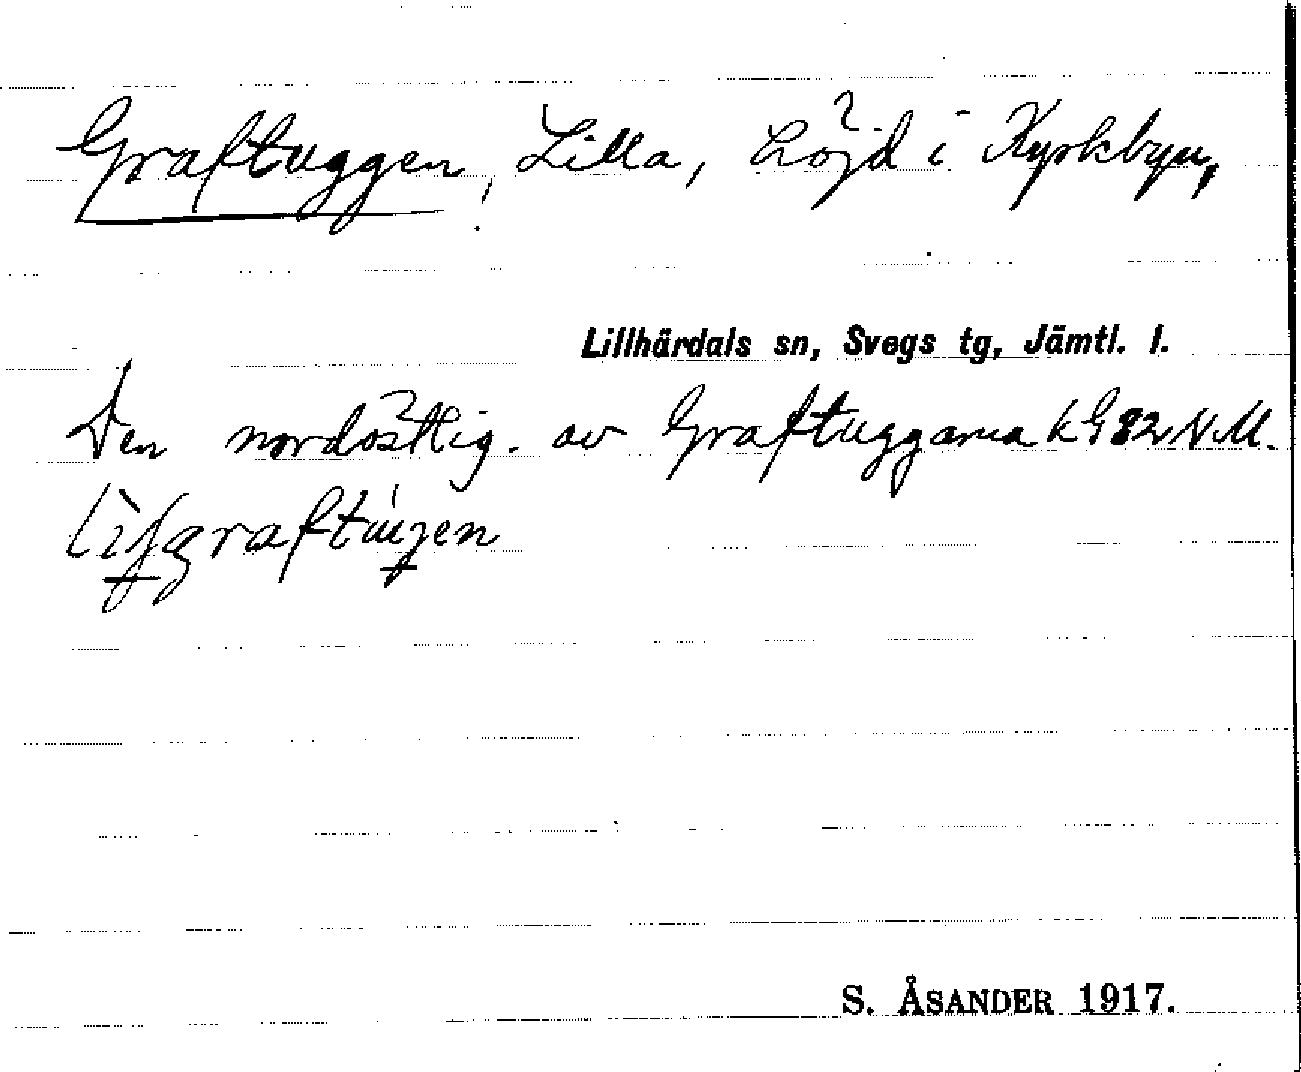 Graftuggen, Lilla, Höjd i Kyrkbyn,
Lillhärdals sn, Svegs tg, Jämtl. l.
Den nordöstlig. av Graftuggarna kG82NM.
S. ÅSANDER 1917.